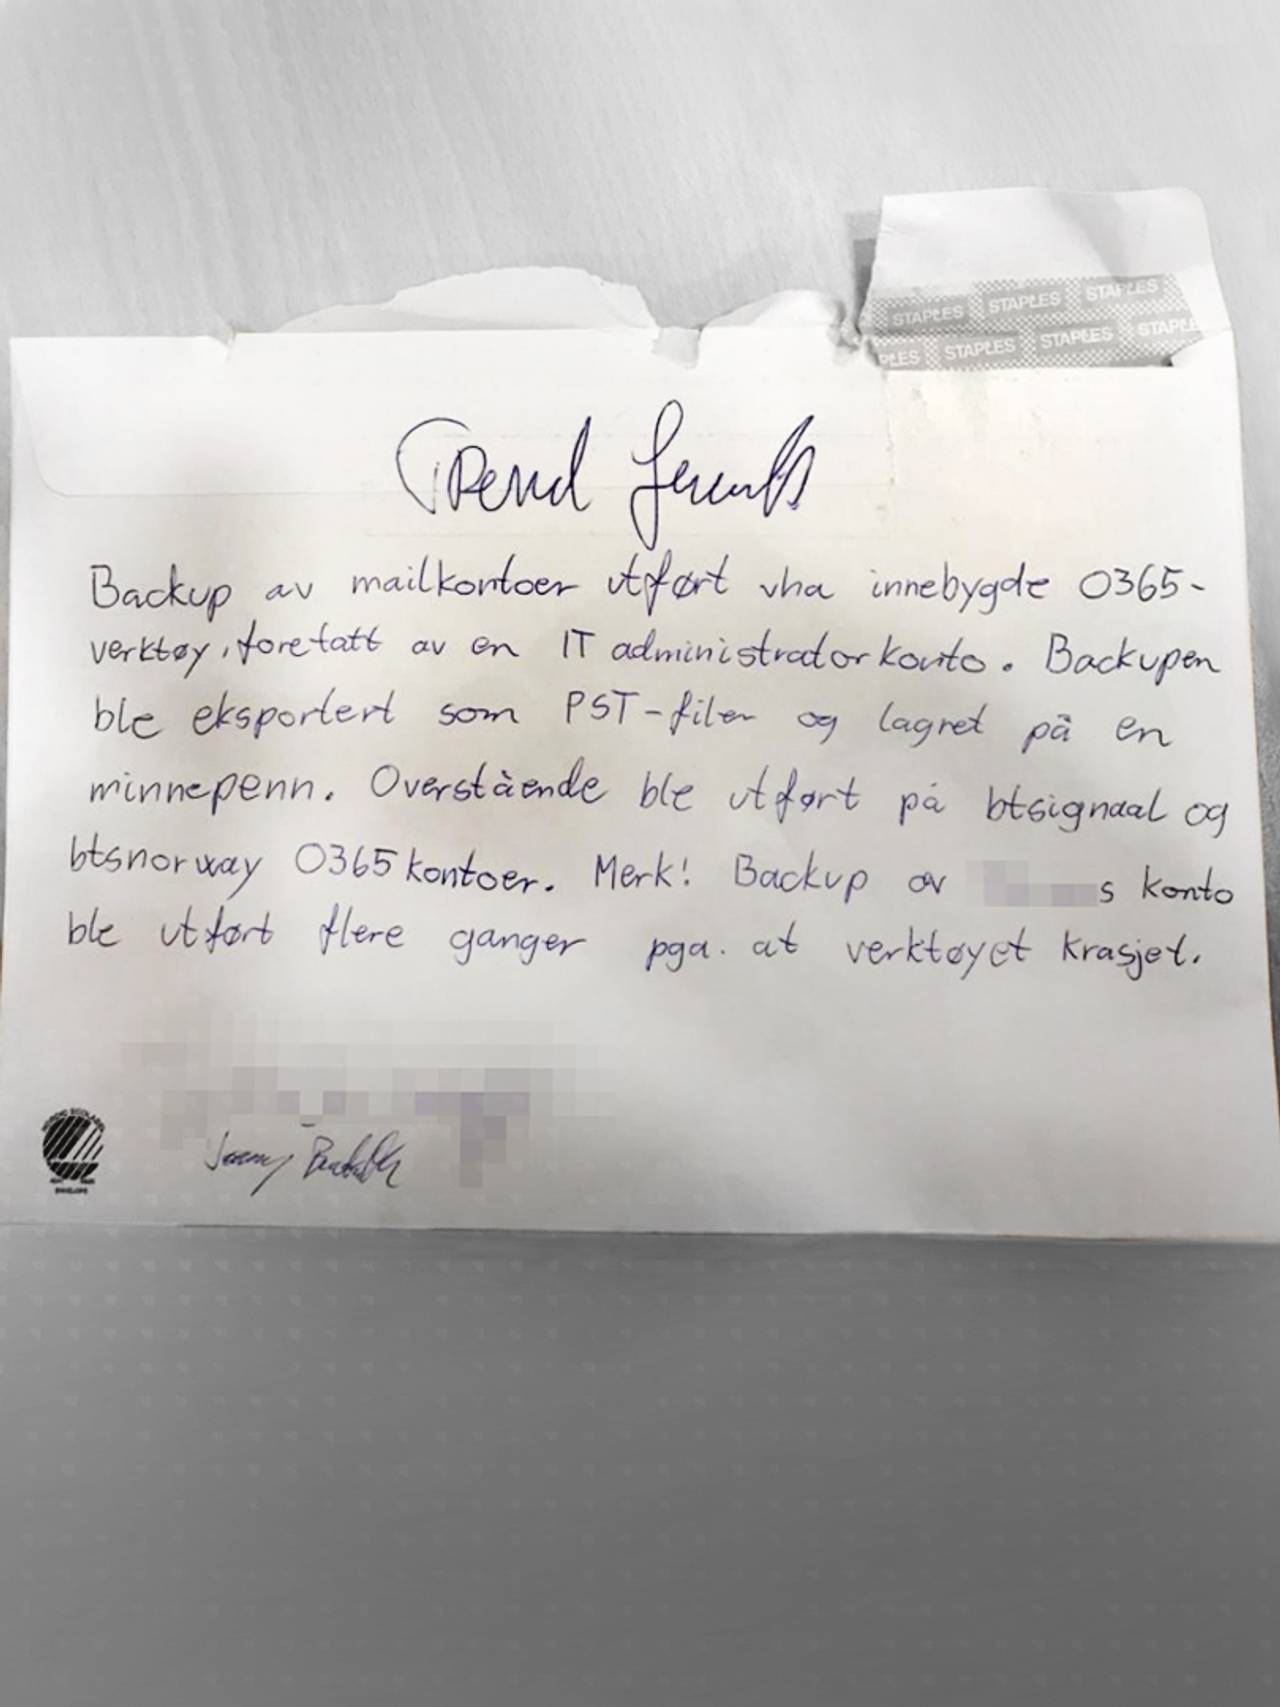 STAPLES STAPLES STAPLES
STAPLES STAPLES
Backup av mailkontoer utført vha innebygde O365-
verktøy, foretatt av en IT administratorkonto. Backupen
ble eksportert som PST-filer og lagret på en
minnepenn. Overstående ble utført på btsignaal og
btsnorway O365 kontoer. Merk! Backup av s konto
ble utført flere ganger pga. at verktøyet krasjet.